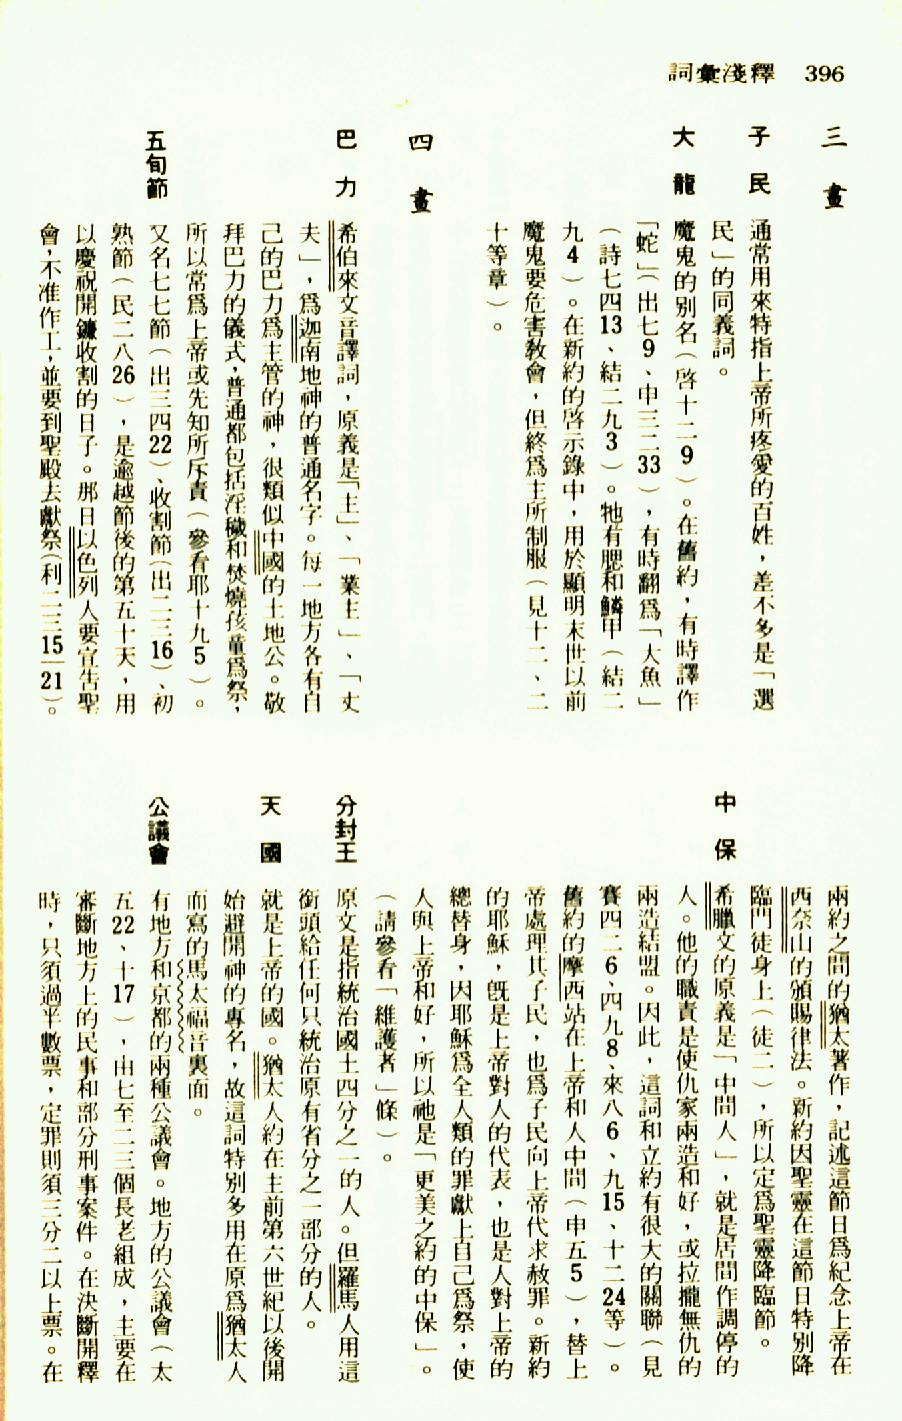 詞彙淺釋　396
三　畫
子　民　通常用來特指上帝所疼愛的百姓，差不多是「選
民」的同義詞。
大　龍　魔鬼的別名（啓十二9）。在舊約，有時譯作
「蛇」（出七9、申三二33），有時翻爲「大魚」
（詩七四13、結二九3）。牠有腮和鱗甲（結二
九4）。在新約的啓示錄中，用於顯明末世以前
魔鬼要危害教會，但終爲主所制服（見十二、二
十等章）。
四　畫
巴　力　希伯來文音譯詞，原義是「主」、「業主」、「丈
夫」，爲迦南地神的普通名字。每一地方各有自
己的巴力爲主管的神，很類似中國的土地公。敬
拜巴力的儀式，普通都包括淫穢和焚燒孩童爲祭，
所以常爲上帝或先知所斥責（參看耶十九5）。
五旬節　又名七七節（出三四22）、收割節（出二三16）、初
熟節（民二八26），是逾越節後的第五十天，用
以慶祝開鐮收割的日子。那日以色列人要宣告聖
會，不准作工，並要到聖殿去獻祭（利二三15—21）。
兩約之間的猶太著作，記述這節日爲紀念上帝在
西奈山的頒賜律法。新約因聖靈在這節日特別降
臨門徒身上（徒二），所以定爲聖靈降臨節。
中　保　希臘文的原義是「中間人」，就是居間作調停的
人。他的職責是使仇家兩造和好，或拉攏無仇的
兩造結盟。因此，這詞和立約有很大的關聯（見
賽四二6、四九8、來八6、九15、十二24等）。
舊約的摩西站在上帝和人中間（申五5），替上
帝處理其子民，也爲子民向上帝代求赦罪。新約
的耶穌，既是上帝對人的代表，也是人對上帝的
總替身，因耶穌爲全人類的罪獻上自己爲祭，使
人與上帝和好，所以祂是「更美之約的中保」。
（請參看「維護者」條）。
分封王　原文是指統治國土四分之一的人。但羅馬人用這
銜頭給任何只統治原有省分之一部分的人。
天　國　就是上帝的國。猶太人約在主前第六世紀以後開
始避開神的專名，故這詞特別多用在原爲猶太人
而寫的馬太福音裏面。
公議會　有地方和京都的兩種公議會。地方的公議會（太
五22、十17），由七至二三個長老組成，主要在
審斷地方上的民事和部分刑事案件。在決斷開釋
時，只須過半數票，定罪則須三分二以上票。在